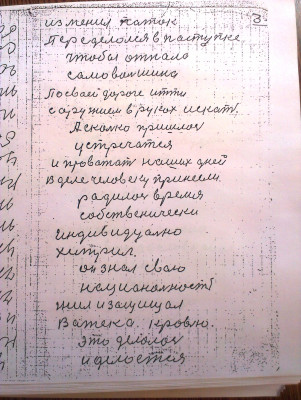 3
изменил паток
Переделолся в паступке
чтобы отпало
самовольшина
По сваей дороге итти
с оружием в руках искать.
А сколко пришлос
устречатся
и проватат наших дней
В деле человеку принесли.
радилос время
собственически
индивидуално
хитрил.
он знал сваю
националност
жил и защищал
Ватека. кровлю.
это делолос
и делоется